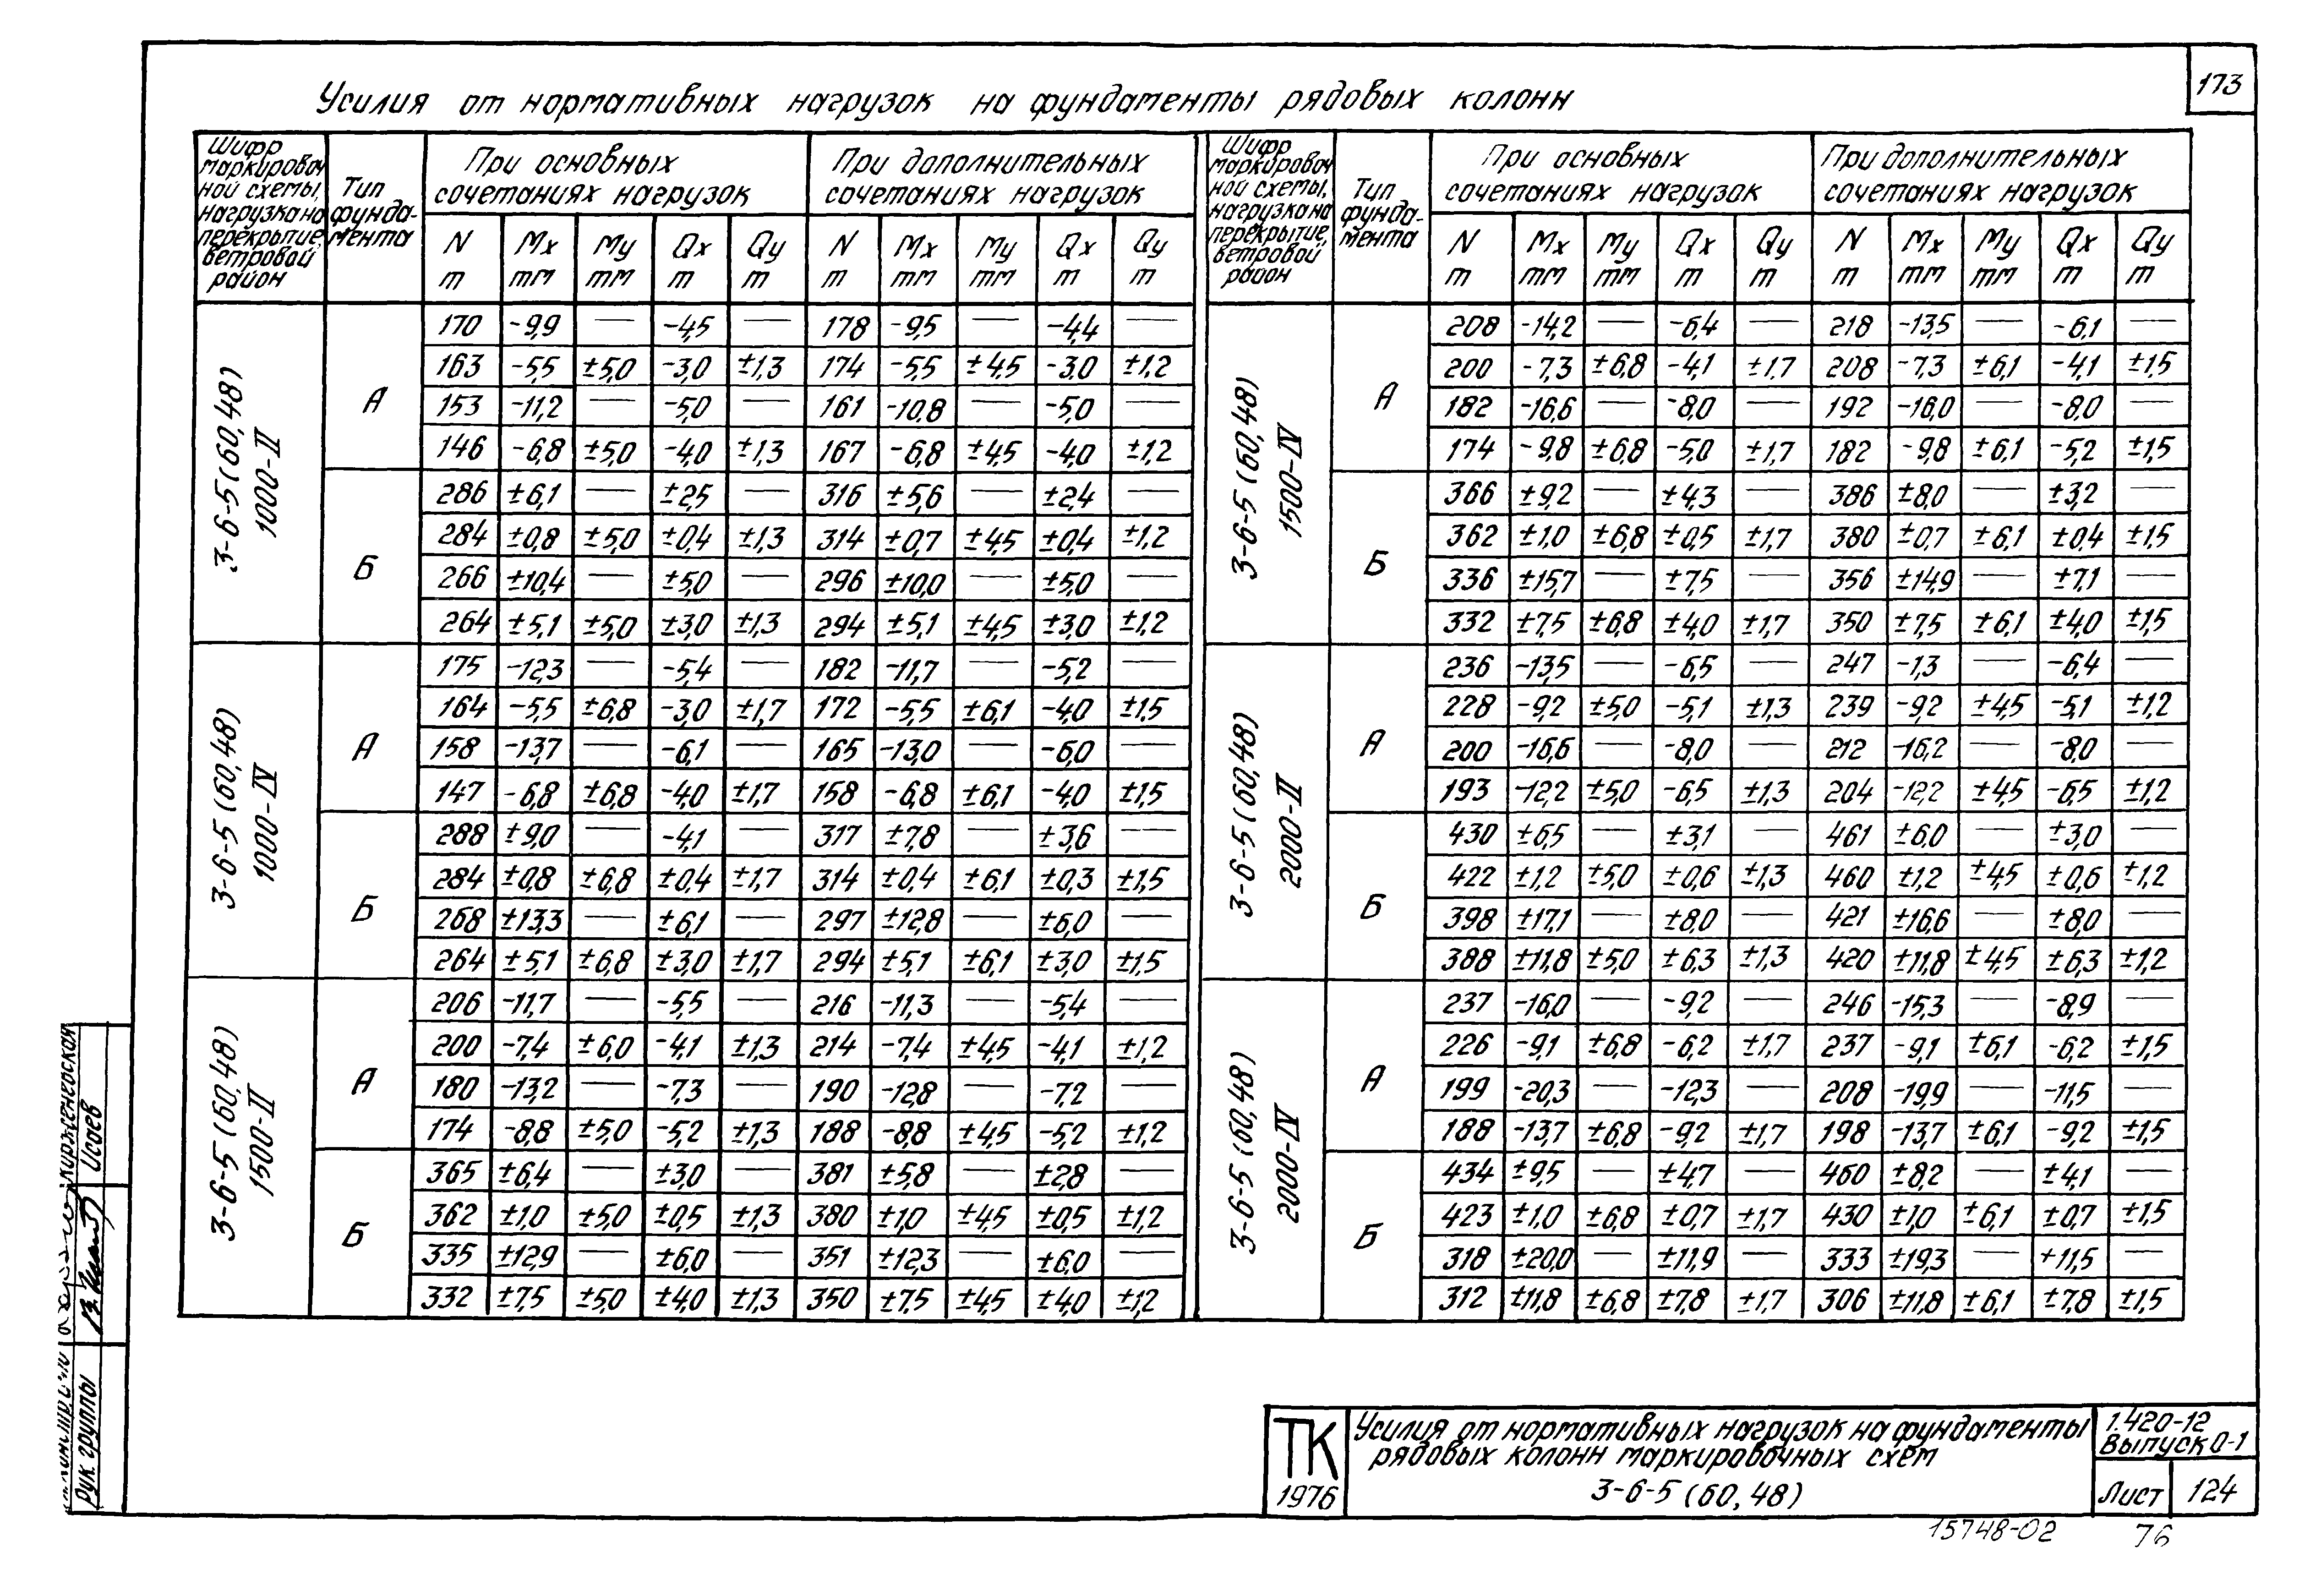 173
Усилия от нормативных нагрузок на фундаменты рядовых колонн
Шифр маркировочной схемы, нагрузка на перекрытие, ветровой район | Тип фундамента | При основных сочетаниях нагрузок | При дополнительных сочетаниях нагрузок
N т | Mx тм | My тм | Qx т | Qy т | N т | Mx тм | My тм | Qx т | Qy т
3-6-5 (60,48) 1000-II
А
170 -9,9 — -4,5 — 178 -9,5 — -4,4 —
163 -5,5 ±5,0 -3,0 ±1,3 174 -5,5 ±4,5 -3,0 ±1,2
153 -11,2 — -5,0 — 161 -10,8 — -5,0 —
146 -6,8 ±5,0 -4,0 ±1,3 167 -6,8 ±4,5 -4,0 ±1,2
Б
286 ±6,1 — ±2,5 — 316 ±5,6 — ±2,4 —
284 ±0,8 ±5,0 ±0,4 ±1,3 314 ±0,7 ±4,5 ±0,4 ±1,2
266 ±10,4 — ±5,0 — 296 ±10,0 — ±5,0 —
264 ±5,1 ±5,0 ±3,0 ±1,3 294 ±5,1 ±4,5 ±3,0 ±1,2
3-6-5 (60,48) 1000-IV
А
175 -12,3 — -5,4 — 182 -11,7 — -5,2 —
164 -5,5 ±6,8 -3,0 ±1,7 172 -5,5 ±6,1 -4,0 ±1,5
158 -13,7 — -6,1 — 165 -13,0 — -6,0 —
147 -6,8 ±6,8 -4,0 ±1,7 158 -6,8 ±6,1 -4,0 ±1,5
Б
288 ±9,0 — -4,1 — 317 ±7,8 — ±3,6 —
284 ±0,8 ±6,8 ±0,4 ±1,7 314 ±0,4 ±6,1 ±0,3 ±1,5
268 ±13,3 — ±6,1 — 297 ±12,8 — ±6,0 —
264 ±5,1 ±6,8 ±3,0 ±1,7 294 ±5,1 ±6,1 ±3,0 ±1,5
3-6-5 (60,48) 1500-II
А
206 -11,7 — -5,5 — 216 -11,3 — -5,4 —
200 -7,4 ±6,0 -4,1 ±1,3 214 -7,4 ±4,5 -4,1 ±1,2
180 -13,2 — -7,3 — 190 -12,8 — -7,2 —
174 -8,8 ±5,0 -5,2 ±1,3 188 -8,8 ±4,5 -5,2 ±1,2
Б
365 ±6,4 — ±3,0 — 381 ±5,8 — ±2,8 —
362 ±1,0 ±5,0 ±0,5 ±1,3 380 ±1,0 ±4,5 ±0,5 ±1,2
335 ±12,9 — ±6,0 — 351 ±12,3 — ±6,0 —
332 ±7,5 ±5,0 ±4,0 ±1,3 350 ±7,5 ±4,5 ±4,0 ±1,2
Шифр маркировочной схемы, нагрузка на перекрытие, ветровой район | Тип фундамента | При основных сочетаниях нагрузок | При дополнительных сочетаниях нагрузок
N т | Mx тм | My тм | Qx т | Qy т | N т | Mx тм | My тм | Qx т | Qy т
3-6-5 (60,48) 1500-IV
А
208 -14,2 — -6,4 — 218 -13,5 — -6,1 —
200 -7,3 ±6,8 -4,1 ±1,7 208 -7,3 ±6,1 -4,1 ±1,5
182 -16,6 — -8,0 — 192 -16,0 — -8,0 —
174 -9,8 ±6,8 -5,0 ±1,7 182 -9,8 ±6,1 -5,2 ±1,5
Б
366 ±9,2 — ±4,3 — 386 ±8,0 — ±3,2 —
362 ±1,0 ±6,8 ±0,5 ±1,7 380 ±0,7 ±6,1 ±0,4 ±1,5
336 ±15,7 — ±7,5 — 356 ±14,9 — ±7,1 —
332 ±7,5 ±6,8 ±4,0 ±1,7 350 ±7,5 ±6,1 ±4,0 ±1,5
3-6-5 (60,48) 2000-II
А
236 -13,5 — -6,5 — 247 -1,3 — -6,4 —
228 -9,2 ±5,0 -5,1 ±1,3 239 -9,2 ±4,5 -5,1 ±1,2
200 -16,6 — -8,0 — 212 -16,2 — -8,0 —
193 -12,2 ±5,0 -6,5 ±1,3 204 -12,2 ±4,5 -6,5 ±1,2
Б
430 ±6,5 — ±3,1 — 461 ±6,0 — ±3,0 —
422 ±1,2 ±5,0 ±0,6 ±1,3 460 ±1,2 ±4,5 ±0,6 ±1,2
398 ±17,1 — ±8,0 — 421 ±16,6 — ±8,0 —
388 ±11,8 ±5,0 ±6,3 ±1,3 420 ±11,8 ±4,5 ±6,3 ±1,2
3-6-5 (60,48) 2000-IV
А
237 -16,0 — -9,2 — 246 -15,3 — -8,9 —
226 -9,1 ±6,8 -6,2 ±1,7 237 -9,1 ±6,1 -6,2 ±1,5
199 -20,3 — -12,3 — 208 -19,9 — -11,5 —
188 -13,7 ±6,8 -9,2 ±1,7 198 -13,7 ±6,1 -9,2 ±1,5
Б
434 ±9,5 — ±4,7 — 460 ±8,2 — ±4,1 —
423 ±1,0 ±6,8 ±0,7 ±1,7 430 ±1,0 ±6,1 ±0,7 ±1,5
318 ±20,0 — ±11,9 — 333 ±19,3 — +11,5 —
312 ±11,8 ±6,8 ±7,8 ±1,7 306 ±11,8 ±6,1 ±7,8 ±1,5
Рук группы
Исаев
ТК
1976
Усилия от нормативных нагрузок на фундаменты
рядовых колонн маркировочных схем
3-6-5 (60,48)
1.420-12
Выпуск 0-1
Лист 124
15748-02 76